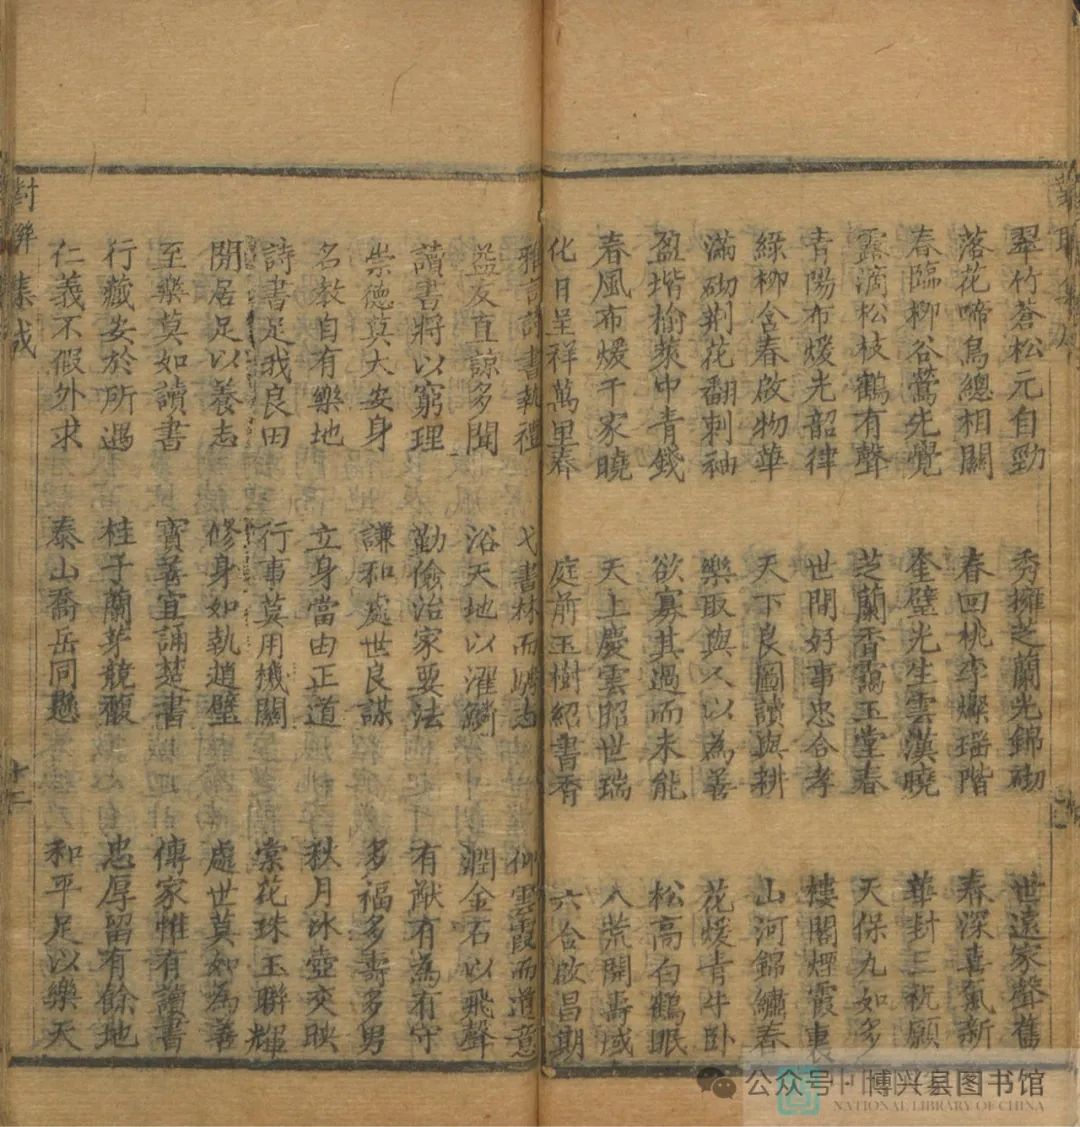 翠竹蒼松元自勁 秀擁芝蘭光錦砌 世遠家聲舊
落花啼鳥總相關 春回桃李燦瑤階 春深喜氣新
春臨柳谷鶯先覺 奎璧光生雲漢曉 華封三祝願
露滴松枝鶴有聲 芝蘭香靄玉堂春 天保九如多
青陽布煖光韶律 世間好事忠合孝 樓閣煙霞裏
綠柳含春啟物華 天下良圖讀與耕 山河錦繡春
滿砌荆花翻刺袖 樂取與人以為善 花煖青牛卧
盈堦榆莢中青錢 欲寡其過而未能 松高白鶴眠
春風布煖千家曉 天上慶雲昭世瑞 八荒開壽域
化日呈祥萬里春 庭前玉樹紹書香 六合啟昌期
雅言詩書執禮 弋書林而騁志 仰雲霞而道意
益友直諒多聞 浴天地以濯鱗 潤金石以飛聲
讀書將以窮理 勤儉治家要法 有猷有為有守
崇德莫大安身 謙和處世良謀 多福多壽多男
名教自有樂地 立身當由正道 秋月冰壺交映
詩書足我良田 行事莫用機關 棠花珠玉聯輝
閒居足以養志 修身如執趙璧 處世莫如為善
至樂莫如讀書 寶善宜誦楚書 傳家惟有讀書
行藏安於所遇 桂子蘭芽競馥 忠厚留有餘地
仁義不假外求 泰山喬岳同懸 和平足以樂天
對聯集成 十二
公众号·博兴县图书馆
NATIONAL LIBRARY OF CHINA